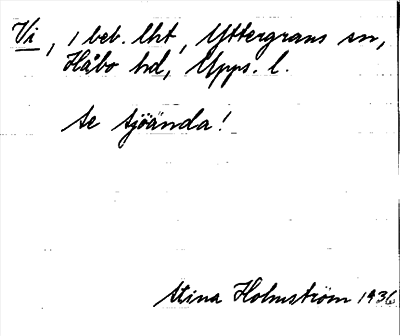 Vi, 1 beb. lht, Yttergrans sn,
Håbo hd, Upps. l.
se Sjöända!
Stina Holmström 1936